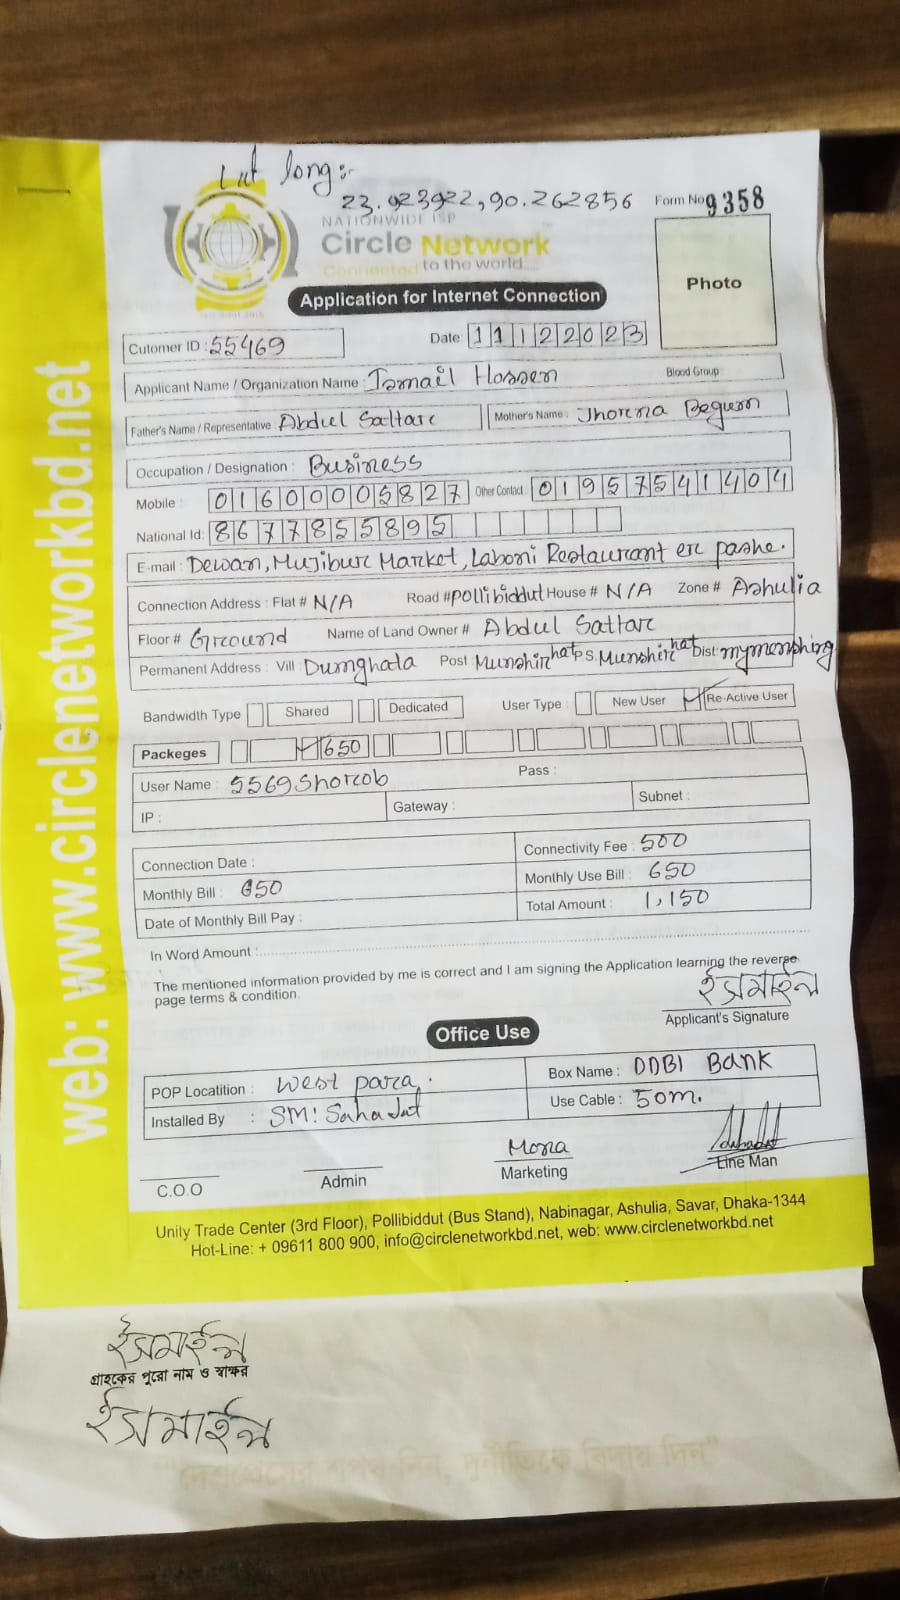 Lat long:-
23.923922,90.262856
Form No 9358
NATIONWIDE ISP
Circle Network
Connected to the world...
Photo
Application for Internet Connection
Cutomer ID : 55469
Date: 11122023
Applicant Name / Organization Name : Ismail Hossen Blood Group :
Father's Name / Representative Abdul Sattar Mother's Name : Jhorna Begum
Occupation / Designation : Business
Mobile : 01600005827 Other Contact : 01957541404
National Id: 8677855895
E-mail : Dewan, Mujibur Market, Laboni Restaurant er pashe.
Connection Address : Flat # N/A Road # pollibiddut House # N/A Zone # Ashulia
Floor # Ground Name of Land Owner # Abdul Sattar
Permanent Address : Vill Dumghata Post Munshirhat P.S. Munshirhat Dist mymenshing
Bandwidth Type Shared Dedicated User Type : New User Re-Active User
Packeges 650
User Name : 5569Shorob Pass :
IP : Gateway : Subnet :
Connection Date : Connectivity Fee : 500
Monthly Bill : 650 Monthly Use Bill : 650
Date of Monthly Bill Pay : Total Amount : 1,150
In Word Amount :
The mentioned information provided by me is correct and I am signing the Application learning the reverse
page terms & condition.
ইসমাইল
Applicant's Signature
Office Use
POP Locatition : West para. Box Name : DDBI Bank
Installed By : SM: Sahadat Use Cable : 50m.
Mona
C.O.O Admin Marketing Line Man
Unity Trade Center (3rd Floor), Pollibiddut (Bus Stand), Nabinagar, Ashulia, Savar, Dhaka-1344
Hot-Line: + 09611 800 900, info@circlenetworkbd.net, web: www.circlenetworkbd.net
web: www.circlenetworkbd.net
ইসমাইল
গ্রাহকের পুরো নাম ও স্বাক্ষর
ইসমাইল